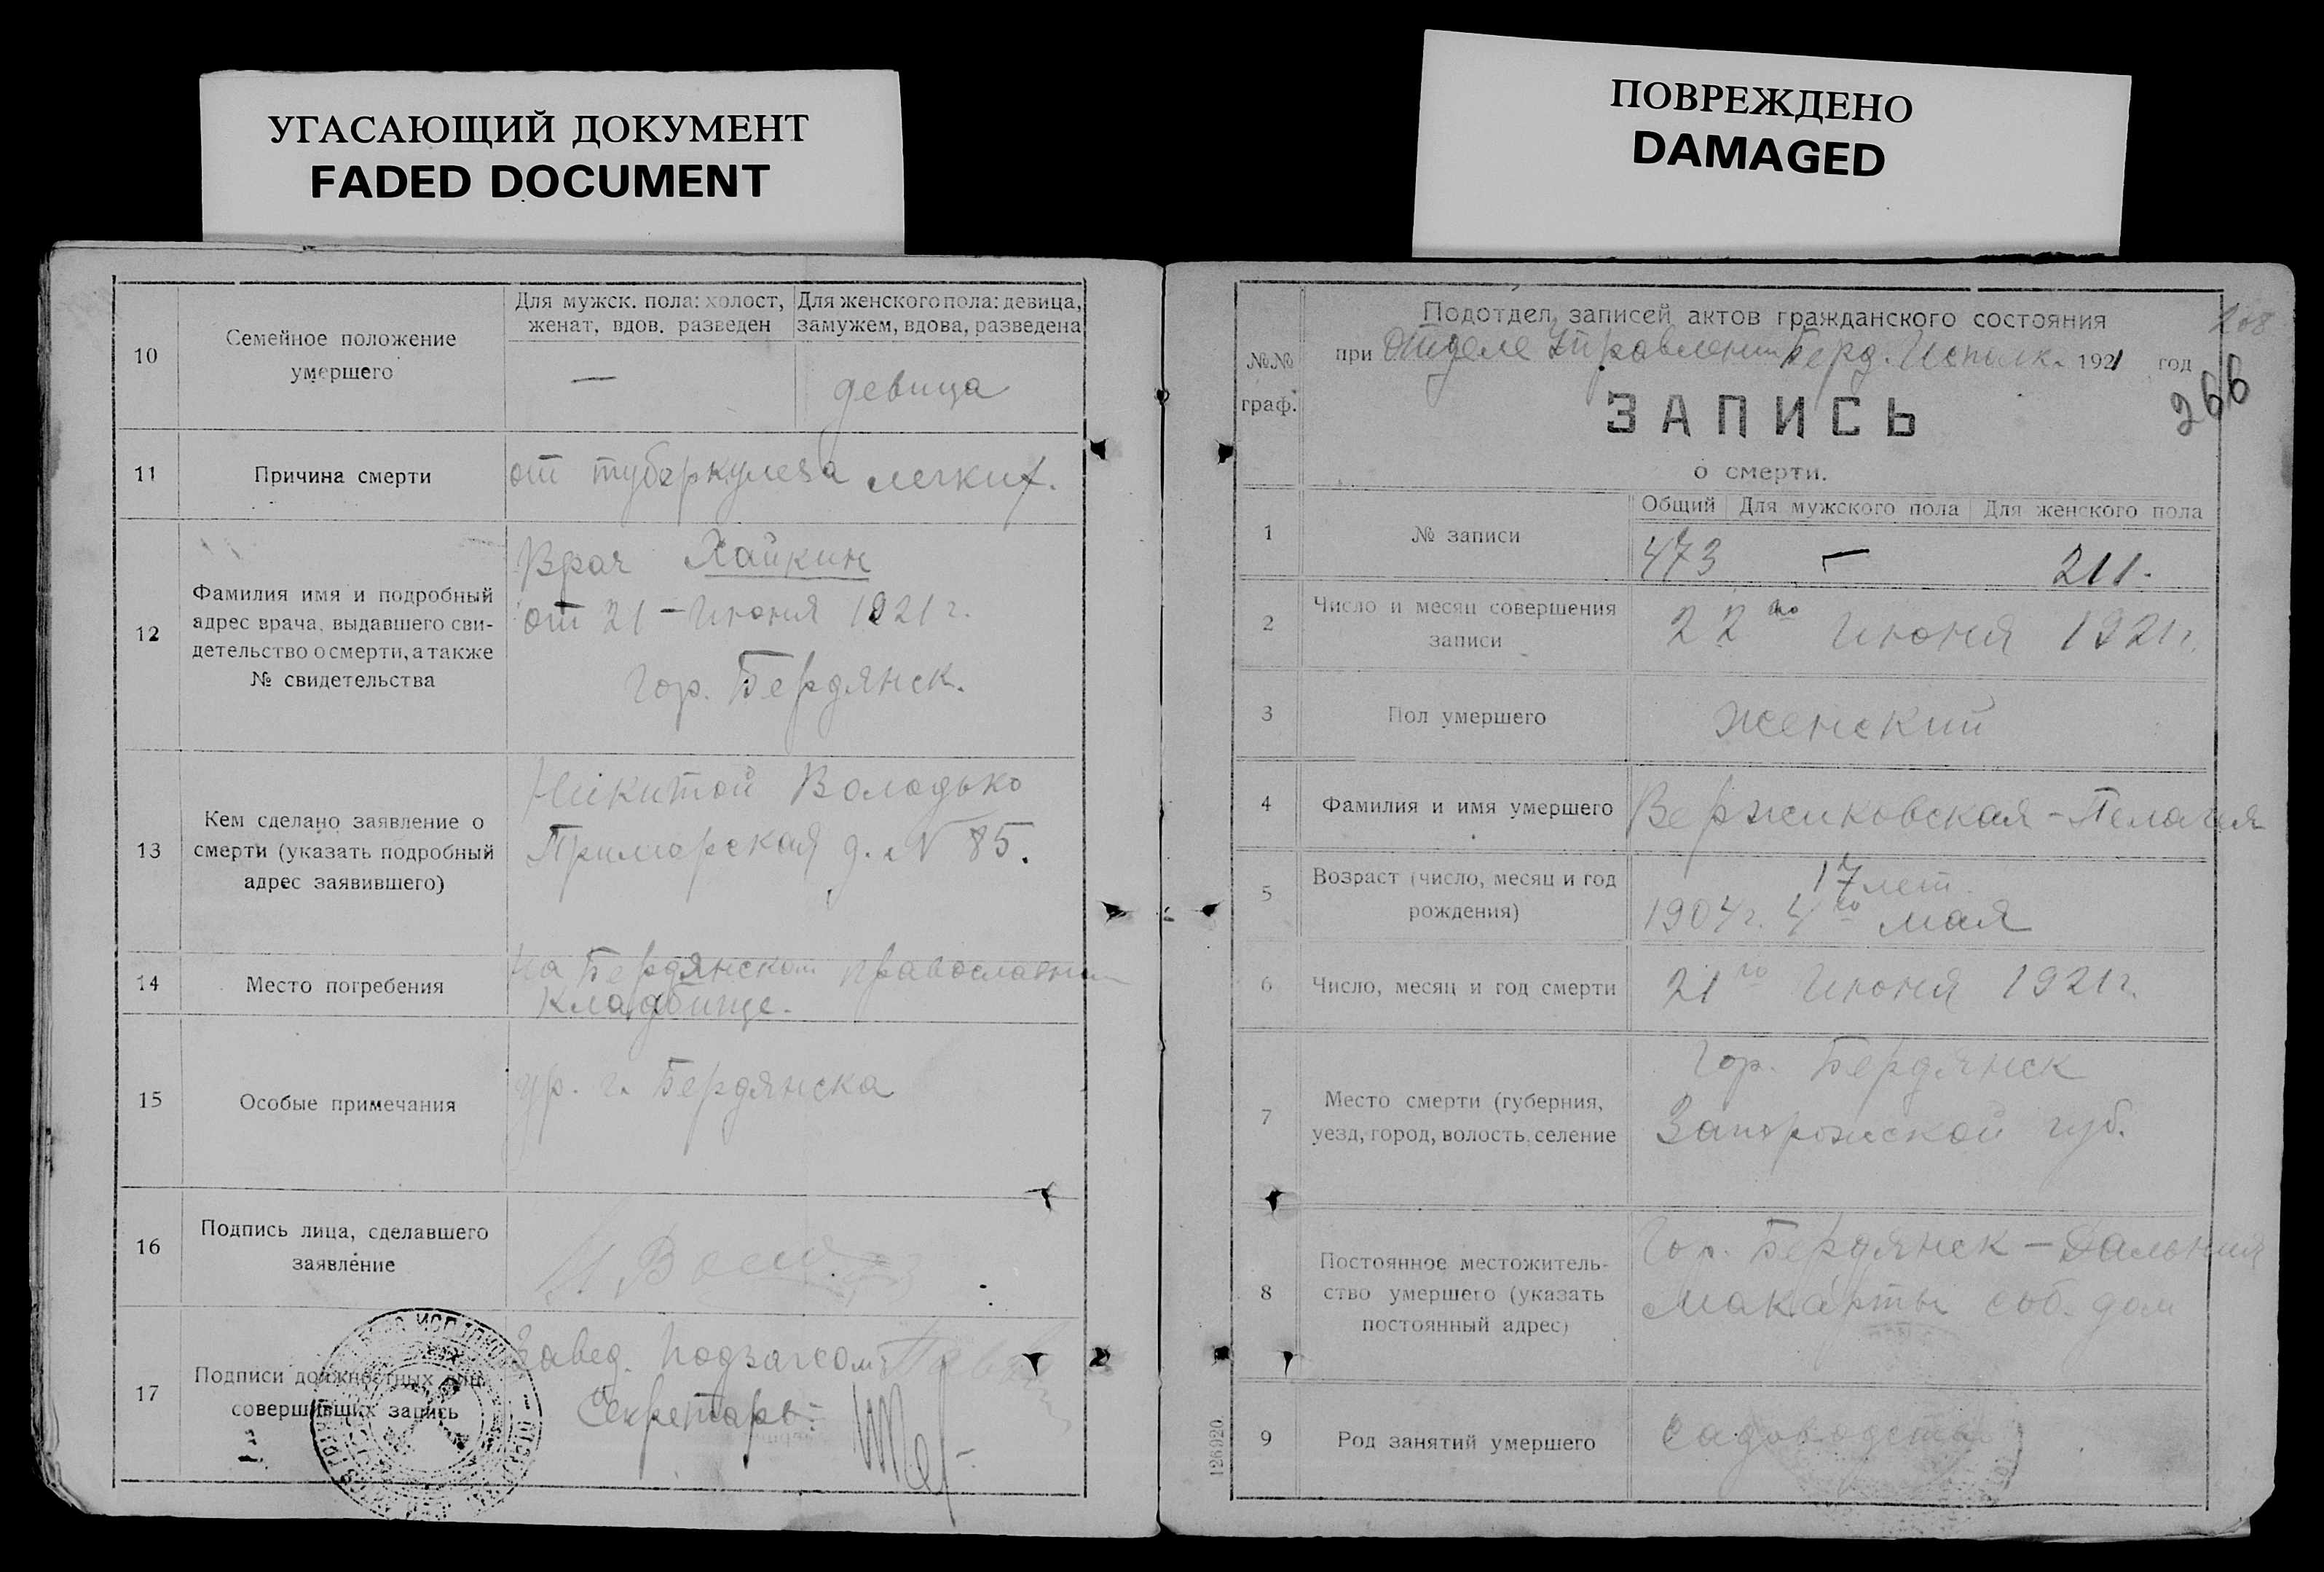 УГАСАЮЩИЙ ДОКУМЕНТ
FADED DOCUMENT
ПОВРЕЖДЕНО
DAMAGED
10
Семейное положение
умершего
Для мужск. пола: холост,
женат, вдов. разведен
—
Для женского пола: девица,
замужем, вдова, разведена
девица
11
Причина смерти
от туберкулеза легких.
12
Фамилия имя и подробный
адрес врача, выдавшего сви-
детельство о смерти, а также
№ свидетельства
Врач Хайкин
от 21 – Июня 1921 г.
Гор. Бердянск.
13
Кем сделано заявление о
смерти (указать подробный
адрес заявившего)
Никитой Володько
Приморская д. № 85.
14
Место погребения
на Бердянском православном
кладбище.
15
Особые примечания
ур. г. Бердянска
16
Подпись лица, сделавшего
заявление
17
Подписи должностных лиц
совершивших запись
Завед. Подзагсом
Секретарь:
208
266
№№
граф.
Подотдел записей актов гражданского состояния
при Отделе Управления Берд. Исполк. 1921 год
ЗАПИСЬ
о смерти.
1
№ записи
Общий Для мужского пола Для женского пола
473 — 211.
2
Число и месяц совершения
записи
22го Июня 1921 г.
3
Пол умершего
женский
4
Фамилия и имя умершего
Вержиковская - Пелагея
5
Возраст (число, месяц и год
рождения)
17 лет.
1904 г. 4го мая
6
Число, месяц и год смерти
21го Июня 1921 г.
7
Место смерти (губерния,
уезд, город, волость, селение
Гор. Бердянск
Запорожской губ.
8
Постоянное местожитель-
ство умершего (указать
постоянный адрес)
Гор. Бердянск – Дальния
Макарты соб. дом
9
Род занятий умершего
126920